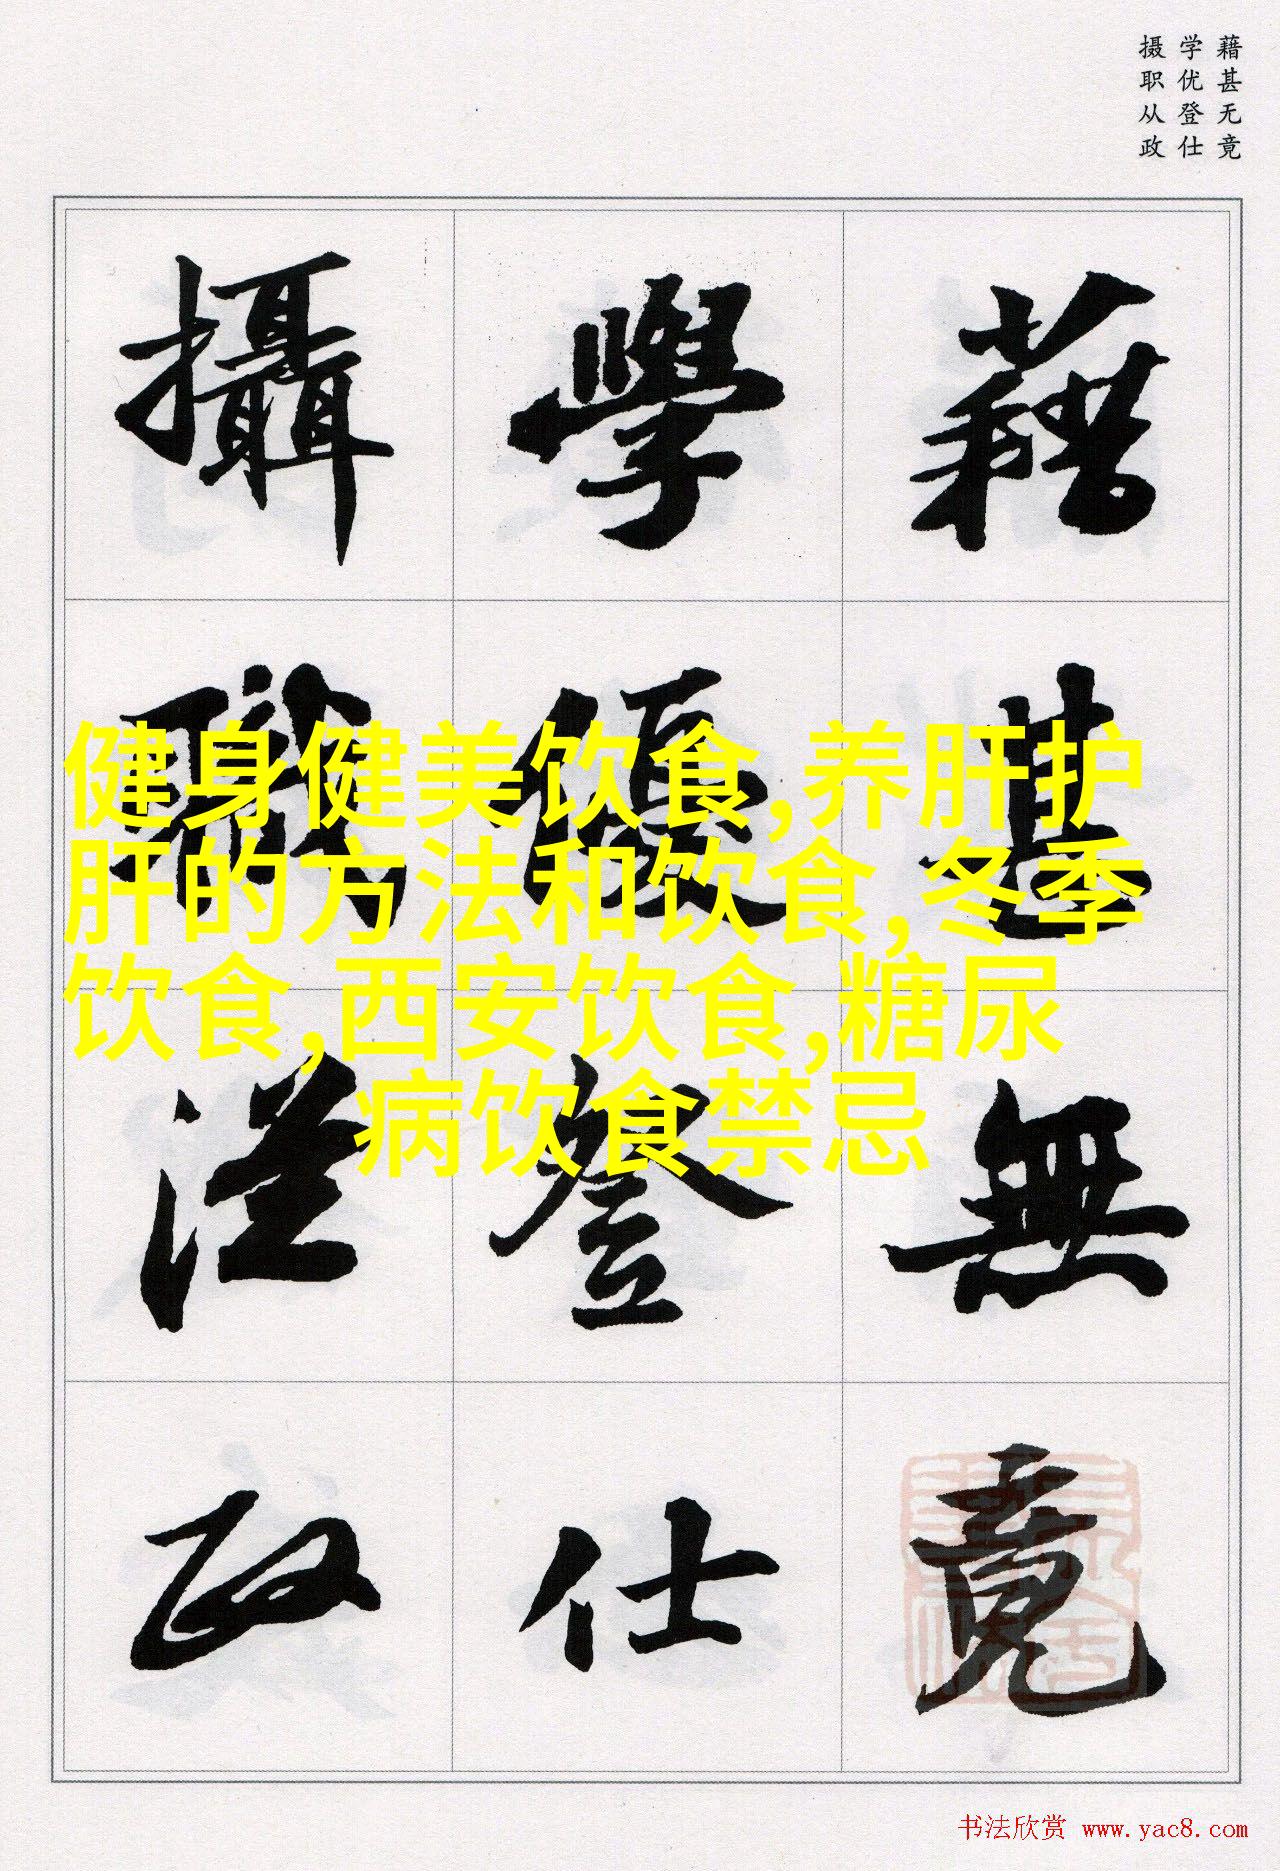 藉甚无竟
学优登仕
摄职从政
藉甚無竟
學優登仕
攝職從政
健身健美饮食,养肝护
肝的方法和饮食,冬季
饮食,西安饮食,糖尿
病饮食禁忌
书法欣赏 www.yac8.com